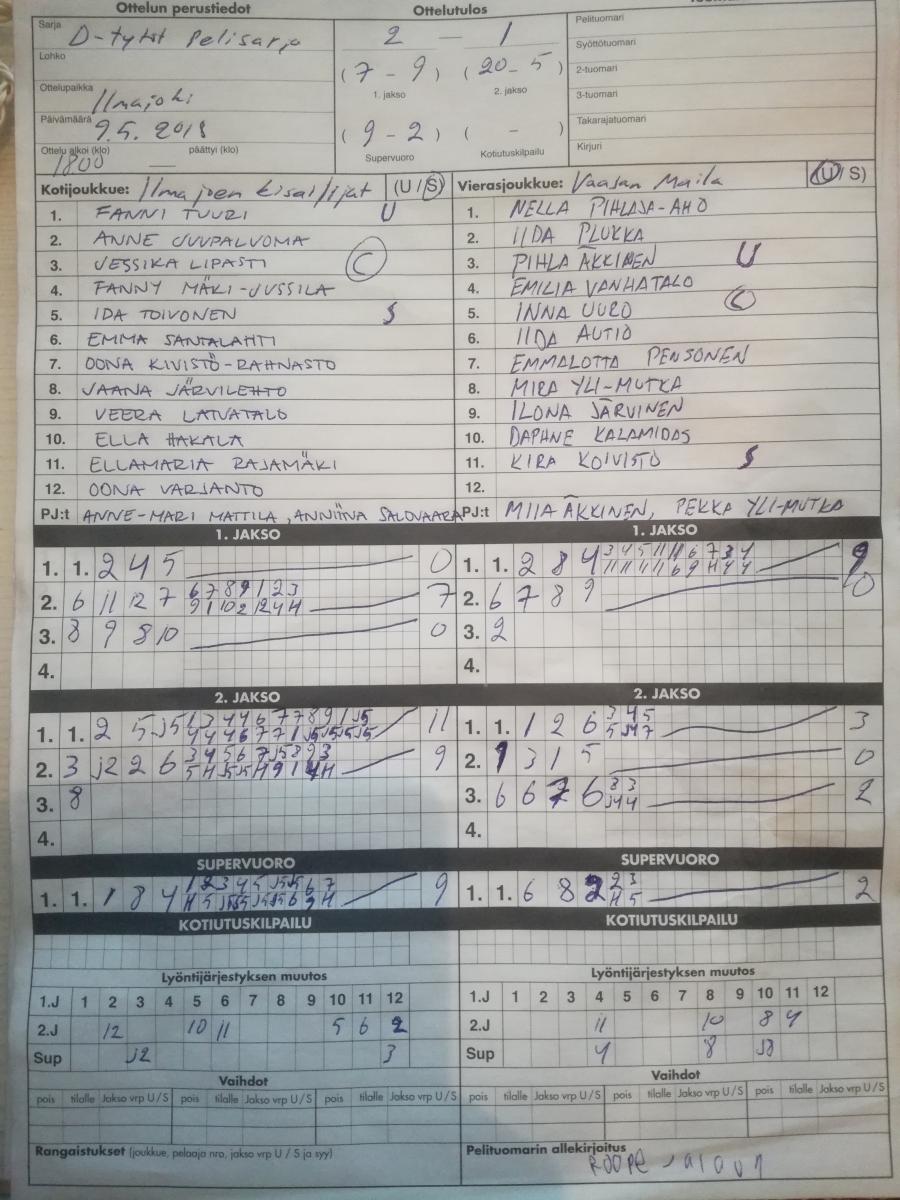 Ottelun perustiedot
Ottelutulos
Sarja
D-tytöt Pelisarja
Lohko
Ottelupaikka
Ilmajoki
Päivämäärä
9.5. 2018
Ottelu alkoi (klo) päättyi (klo)
1800 —
2 — 1
(7 - 9) (20 - 5)
1. jakso 2. jakso
(9 - 2) ( - )
Supervuoro Kotiutuskilpailu
Pelituomari
Syöttötuomari
2-tuomari
3-tuomari
Takarajatuomari
Kirjuri
Kotijoukkue: Ilmajoen Kisailijat (U/S)
1. FANNI TUURI U
2. ANNE UUPALUOMA
3. JESSIKA LIPASTI C
4. FANNY MÄKI-JUSSILA
5. IDA TOIVONEN S
6. EMMA SANTALAHTI
7. OONA KIVISTÖ-RAHNASTO
8. JAANA JÄRVILEHTO
9. VEERA LATVATALO
10. ELLA HAKALA
11. ELLAMARIA RAJAMÄKI
12. OONA VARJANTO
PJ:t ANNE-MARI MATTILA, ANNIINA SALOVAARA
Vierasjoukkue: Vaasan Maila (U/S)
1. NELLA PIHLAJA-AHO
2. IIDA PLUKKA
3. PIHLA ÄKKINEN U
4. EMILIA VANHATALO
5. INNA UURO C
6. IIDA AUTIO
7. EMMALOTTA PENSONEN
8. MIRA YLI-MUTKA
9. ILONA JÄRVINEN
10. DAPHNE KALAMIDAS
11. KIRA KOIVISTO S
12.
PJ:t MIIA ÄKKINEN, PEKKA YLI-MUTKA
1. JAKSO
1. 1. 2 4 5 0
2. 6 11 12 7 7
6 7 8 9 1 2 3
9 1 10 2 12 4 H
3. 8 9 8 10 0
4.
1. JAKSO
1. 1. 2 8 4 9
3 4 5 11 11 6 7 3 4
11 11 11 11 6 9 H 4 4
2. 6 7 8 9 0
3. 2
4.
2. JAKSO
1. 1. 2 5 J5 11
2. 3 J2 2 6 9
3. 8
4.
2. JAKSO
1. 1. 1 2 6 3
3 4 5
2. 1 3 1 5 0
3. 6 6 7 6 2
8 3
J4 4
4.
SUPERVUORO
1. 1. 1 8 4 9
SUPERVUORO
1. 1. 6 8 2 2
2 3
H 5
KOTIUTUSKILPAILU
KOTIUTUSKILPAILU
Lyöntijärjestyksen muutos
1.J 1 2 3 4 5 6 7 8 9 10 11 12
2.J 12 10 11 5 6 2
Sup J2 3
Lyöntijärjestyksen muutos
1.J 1 2 3 4 5 6 7 8 9 10 11 12
2.J 11 10 8 4
Sup 4 8 J8
Vaihdot
pois tilalle Jakso vrp U/S pois tilalle Jakso vrp U/S pois tilalle Jakso vrp U/S
Vaihdot
pois tilalle Jakso vrp U/S pois tilalle Jakso vrp U/S pois tilalle Jakso vrp U/S
Rangaistukset (joukkue, pelaaja nro, jakso vrp U / S ja syy)
Pelituomarin allekirjoitus
ROOPE